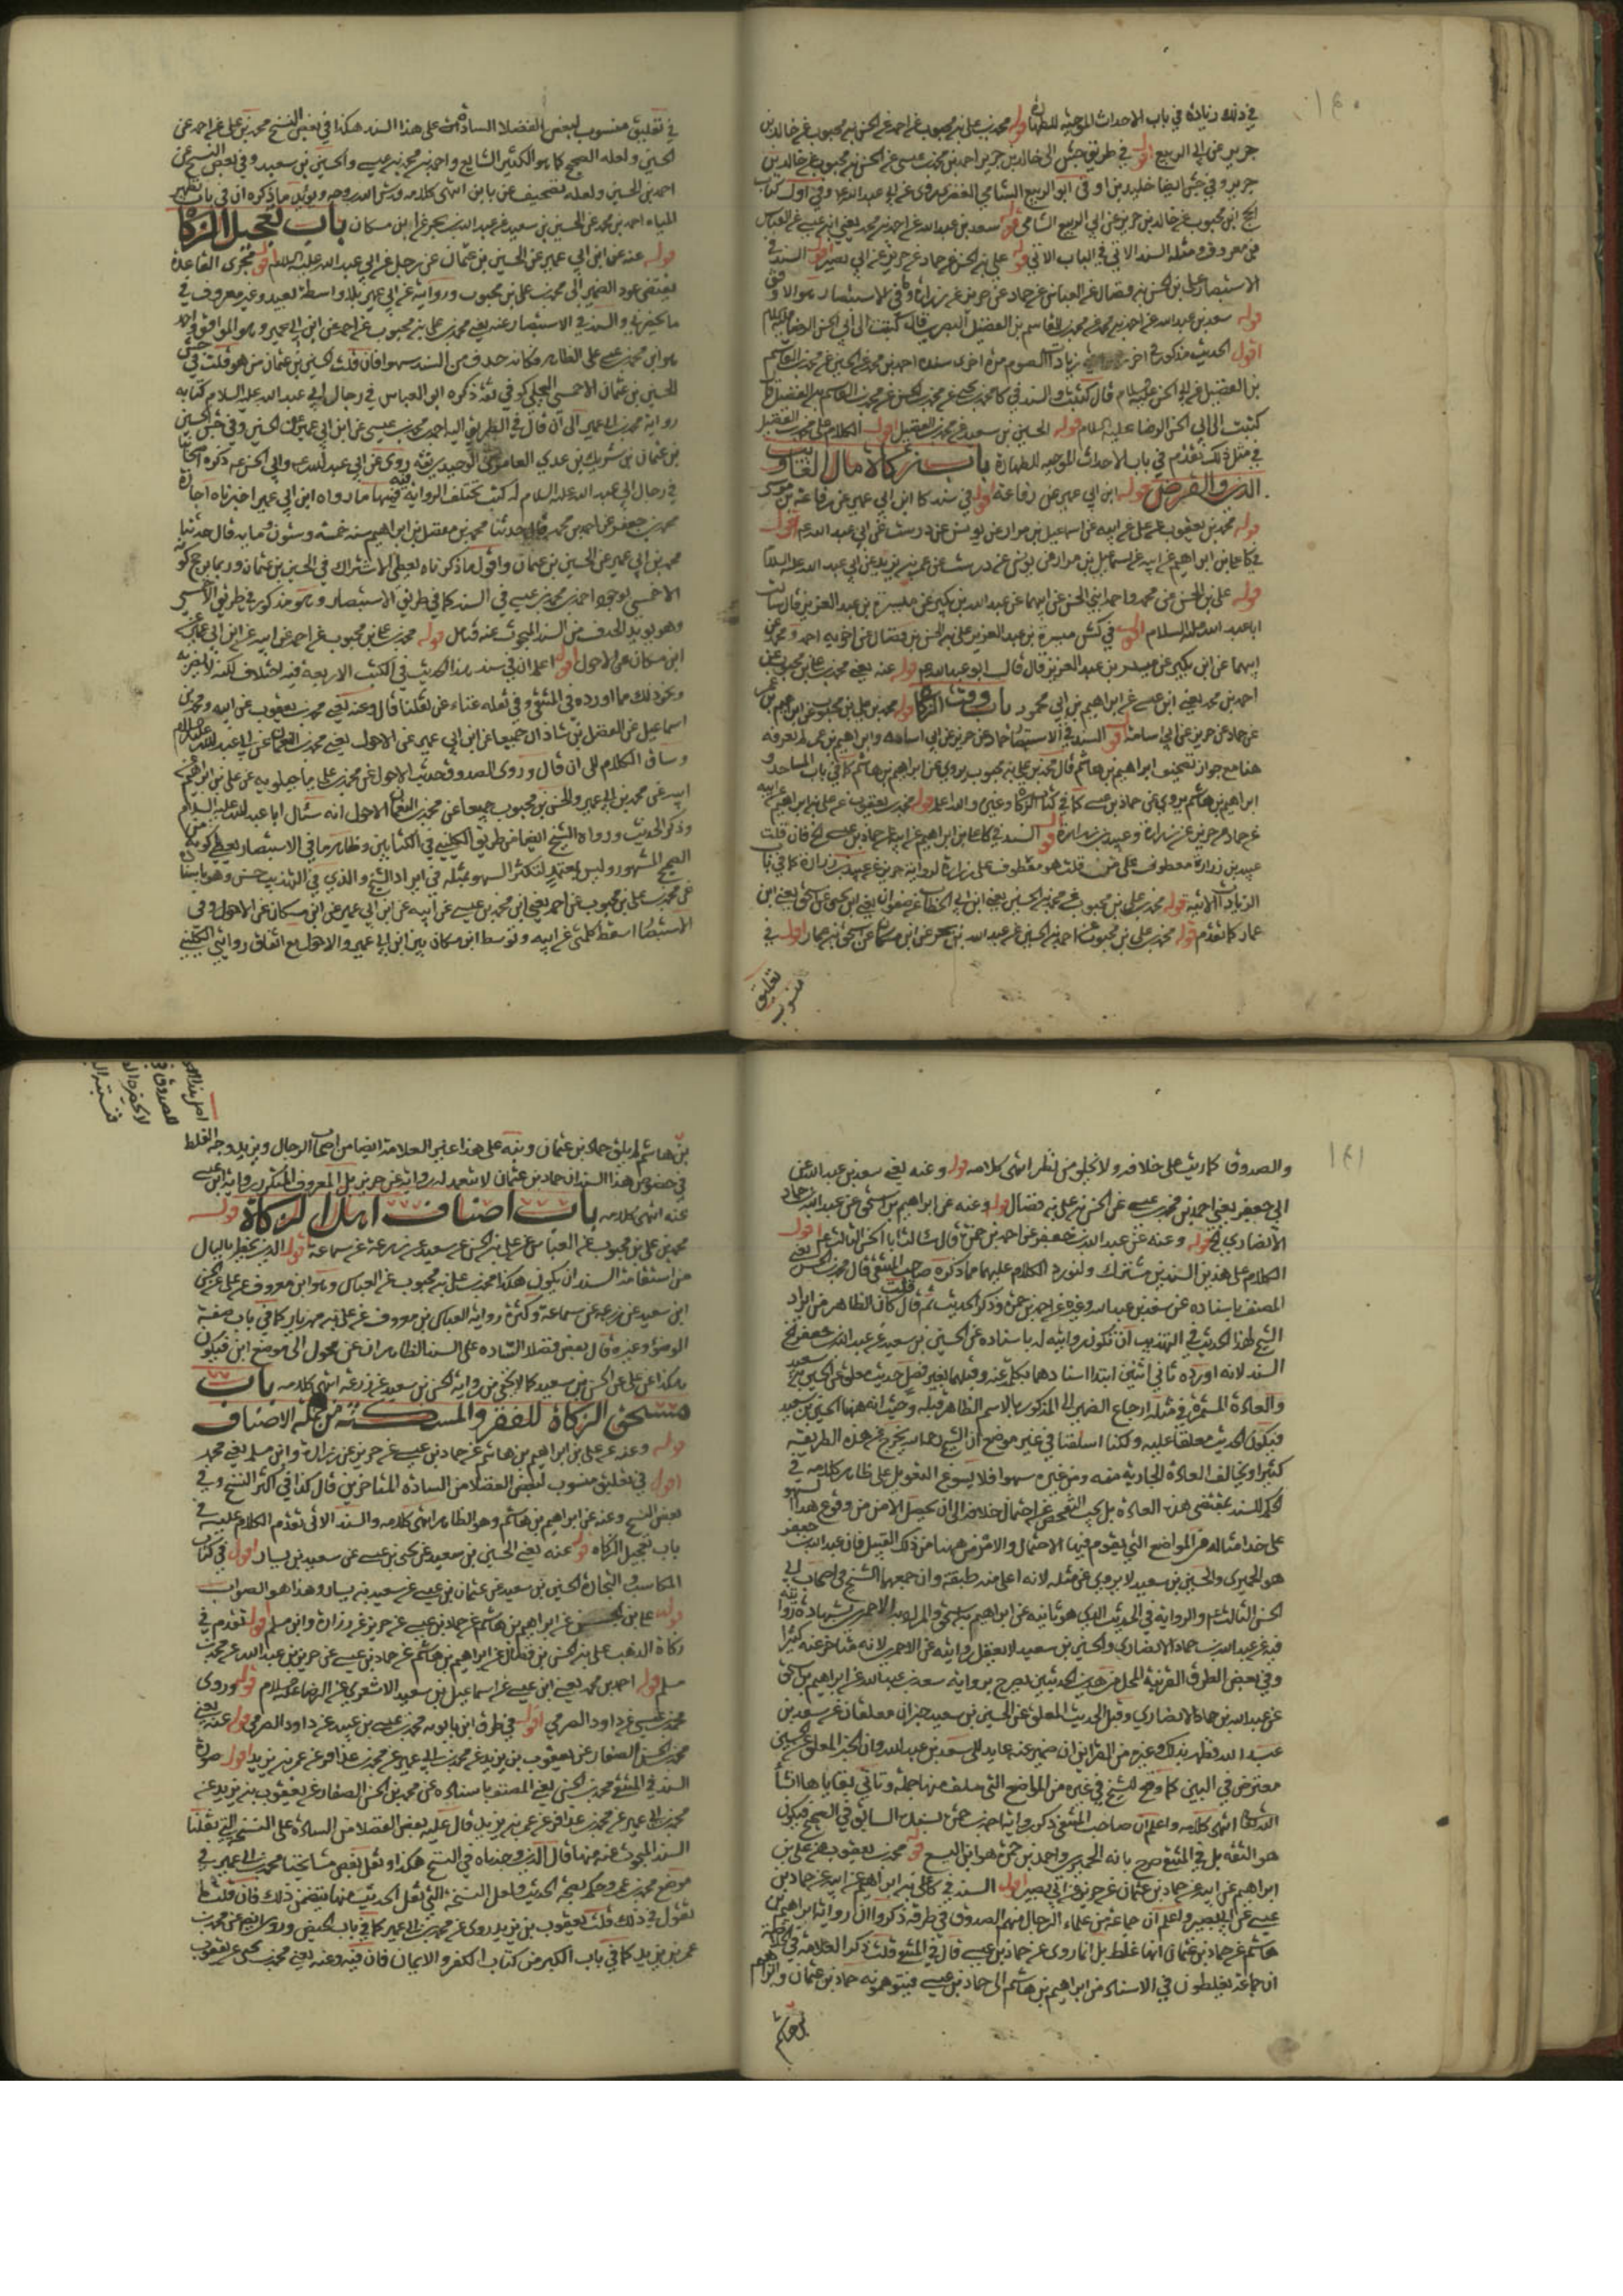 ١٤٠
في ذلك زيادة في باب الاحداث الموجبة للطهارة قوله محمد بن علي بن محبوب عن احمد عن الحسن بن محبوب عن خالد بن
جرير عن ابي الربيع اقول في طريق جش الى خالد بن جرير احمد بن محمد بن عيسى عن الحسن بن محبوب عن خالد بن
جرير وفي جش ايضا خليد بن اوفى ابو الربيع الشامي العنزي روى عن ابي عبد الله ع وفي اول كتاب
الحج ابن محبوب عن خالد بن جرير عن ابي الربيع الشامي قوله سعد بن عبد الله عن احمد بن محمد يعني ابن عيسى عن العباس
بن معروف ومثله السند الاتي في الباب الاتي قوله علي بن الحسن عن حماد عن حريز عن ابي بصير اقول السند في
الاستبصار علي بن الحسن بن فضال عن العباس عن حماد عن حريز عن زرارة وفي الاستبصار هو الاوفق
قوله سعد بن عبد الله عن احمد بن محمد عن محمد بن القاسم بن الفضيل البصري قال كتبت الى ابي الحسن الرضا عليه السلام
اقول الحديث مذكور في اخر زيادات الصوم مرة اخرى سنده احمد بن محمد عن الحسين عن محمد بن القاسم
بن الفضيل عن ابي الحسن عليه السلام قال كتبت والسند في كا محمد بن يحيى عن محمد بن الحسين عن محمد بن القاسم بن الفضيل قال
كتبت الى ابي الحسن الرضا عليه السلام قوله الحسين بن سعيد عن محمد بن الفضيل اقول الكلام على محمد بن الفضيل
في مثل ذلك تقدم في باب الاحداث الموجبة للطهارة باب زكاة مال الغايب
والدين والقرض قوله ابن ابي عمير عن رفاعة اقول في سند كا ابن ابي عمير عن رفاعة بن موسى
قوله محمد بن يعقوب عن علي عن ابيه عن اسماعيل بن مرار عن يونس عن درست عن ابي عبد الله ع اقول
في كا علي بن ابراهيم عن ابيه عن اسماعيل بن مرار عن يونس عن درست عن عمر بن يزيد عن ابي عبد الله عليه السلام
قوله علي بن الحسن عن محمد واحمد ابني الحسن عن ابيهما عن عبد الله بن بكير عن ميسرة بن عبد العزيز قال سالت
ابا عبد الله عليه السلام اقول في كش ميسرة بن عبد العزيز علي بن الحسن بن فضال عن اخويه احمد ومحمد عن
ابيهما عن ابن بكير عن ميسر بن عبد العزيز قال قال ابو عبد الله ع قوله عنه يعني محمد بن علي بن محبوب عن
احمد بن محمد يعني ابن عيسى عن ابراهيم بن ابي محمود باب وقت الزكاة قوله محمد بن علي بن محبوب عن ابراهيم بن عمر
عن حماد عن حريز عن ابي اسامة اقول السند في الاستبصار حماد عن حريز عن ابي اسامة وابراهيم بن عمر لم نعرفه
ابراهيم بن هاشم يروي عن حماد بن عيسى كما في كتاب الزكاة وغيره والله اعلم قوله محمد بن يعقوب عن علي بن ابراهيم عن ابيه
عن حماد عن حريز عن زرارة وعبيد بن زرارة اقول السند في كا علي بن ابراهيم عن ابيه عن حماد بن عيسى الخ فان قلت
عبيد بن زرارة معطوف على من قلت هو معطوف على زرارة لرواية حريز عن عبيد بن زرارة كما في باب
الزيادات الاتية قوله محمد بن علي بن محبوب عن محمد بن الحسين يعني ابن ابي الخطاب عن صفوان يعني ابن يحيى عن اسحق يعني ابن
عمار كما تقدم قوله محمد بن علي بن محبوب عن احمد بن الحسين عن عبد الله بن بحر عن ابن مسكان عن اسحق بن عمار اقول في
تعليق منسوب
في تعليق منسوب لبعض الفضلا السادة على هذا السند هكذا في بعض النسخ محمد بن علي عن احمد عن
الحسين ولعله الصحيح كما هو الكثير الشايع واحمد بن محمد بن عيسى والحسين بن سعيد وفي بعض النسخ عن
احمد بن الحسين ولعله تصحيف عن بابن انتهى كلامه قدس الله روحه ويؤيد ما ذكره ان في باب تطهير
المياه احمد بن محمد عن الحسين بن سعيد عن عبد الله بن بحر عن ابن مسكان باب تعجيل الزكاة
قوله عنه عن ابن ابي عمير عن الحسين بن عثمان عن رجل عن ابي عبد الله عليه السلام اقول مجرى القاعدة
يقتضي عود الضمير الى محمد بن علي بن محبوب وروايته عن ابن ابي عمير بلا واسطة بعيد وغير معروف في
ما يحضرني والسند في الاستبصار عنه يعني محمد بن علي بن محبوب عن احمد عن ابن ابي عمير وهو الموافق واحمد
هو ابن محمد بن عيسى على الظاهر فكانه حذف من السند سهوا فان قلت الحسين بن عثمان من هو قلت في جش
الحسين بن عثمان الاحمسي البجلي كوفي ثقة ذكره ابو العباس في رجال ابي عبد الله عليه السلام كتابه
رواية محمد بن ابي عمير الى ان قال في الطريق اليه احمد بن محمد بن عيسى عن ابن ابي عمير عن الحسين وفي جش الحسين
بن عثمان بن شريك بن عدي العامري الوحيدي ثقة روى عن ابي عبد الله ع وابي الحسن ع ذكره اصحابنا
في رجال ابي عبد الله عليه السلام له كتب تختلف الرواية فيه فمنها ما رواه ابن ابي عمير اخبرناه اجازة
محمد بن جعفر عن احمد بن محمد قال حدثنا محمد بن مفضل بن ابراهيم سنة خمسة وستون وماية قال حدثنا
محمد بن ابي عمير عن الحسين بن عثمان واقول ما ذكرناه يعطي الاشتراك في الحسين بن عثمان وربما يرجح كونه
الاحمسي لوجود احمد بن محمد بن عيسى في السند كما في طريق الاستبصار وهو مذكور في طريق الاحمسي
وهو يؤيد الحذف من السند المبحوث عنه فتامل قوله محمد بن علي بن محبوب عن احمد عن ابيه عن ابن ابي عمير عن
ابن مسكان عن الاحول اقول اعلم ان في سند هذا الحديث في الكتب الاربعة فيه اختلاف
ونحو ذلك مما اورده في المنتقى وفي نقله غناء عن نقلنا قال وعنه يعني محمد بن يعقوب عن ابيه ومحمد بن
اسماعيل عن الفضل بن شاذان جميعا عن ابن ابي عمير عن الاحول يعني محمد بن النعمان عن ابي عبد الله عليه السلام
وساق الكلام الى ان قال وروى الصدوق حديث الاحول عن محمد بن علي ماجيلويه عن علي بن ابراهيم عن
ابيه عن محمد بن ابي عمير والحسن بن محبوب جميعا عن محمد بن النعمان الاحول انه سئل ابا عبد الله عليه السلام
وذكر الحديث ورواه الشيخ ايضا من طريق الكليني في الكتابين وظاهر ما في الاستبصار يعطي كونه من
الصحيح المشهور وليس بمعتمد لتكثر السهو بمثله في ايراد الشيخ والذي في التهذيب حسن وهو باسناده
عن محمد بن علي بن محبوب عن احمد يعني ابن محمد بن عيسى عن ابيه عن ابن ابي عمير عن ابن مسكان عن الاحول وفي
الاستبصار اسقط كلمتي عن ابيه وتوسط ابن مسكان بين ابن ابي عمير والاحول مع اتفاق روايتي الكليني
١٤١
والصدوق كما ريت على خلافه ولا يخلو من نظر انتهى كلامه قوله وعنه يعني سعد بن عبد الله عن
ابي جعفر يعني احمد بن محمد بن عيسى عن الحسن بن علي بن فضال قوله وعنه عن ابراهيم بن اسحق عن عبد الله بن حماد
الانصاري الخ قوله وعنه عن عبد الله بن جعفر عن احمد بن حمزة قال سالت ابا الحسن الثالث ع اقول
الكلام على هذين السندين مشترك ولنورد الكلام عليهما مما ذكره صاحب المنتقى قال محمد بن الحسن يعني
المصنف باسناده عن سعد بن عبد الله وغيره عن احمد بن حمزة وذكر الحديث ثم قال قلت كان الظاهر من ايراد
الشيخ لهذا الحديث في التهذيب ان تكون روايته له باسناده عن الحسين بن سعيد عن عبد الله بن جعفر الخ
السند لانه اورده ثاني اثنين ابتدا اسنادهما بكلمة عنه وقبلهما بغير فصل حديث معلق عن الحسين بن سعيد
والعادة المستمرة في مثله ارجاع الضمير الى المذكور بالاسم الظاهر قبله وحيث انه ههنا الحسين بن سعيد
فيكون الحديث معلقا عليه ولكنا اسلفنا في غير موضع ان الشيخ رحمه الله يخرج عن هذه الطريقة
كثيرا ويخالف العادة الجارية منه ومن غيره سهوا فلا يسوغ التعويل على ظاهر كلامه في
الحكم للسند بمقتضى هذه العادة بل يجب التفحص عن احتمال خلافه الى ان يحصل الامن من وقوع هذا السهو
على حد امثاله في المواضع التي يقوم فيها الاحتمال والامر من ههنا من ذلك القبيل فان عبد الله بن جعفر
هو الحميري والحسين بن سعيد لا يروي عن مثله لانه اعلى منه طبقة وان جمعهما الشيخ في اصحاب ابي
الحسن الثالث ع والرواية في الحديث الذي هو ثانيه عن ابراهيم بن اسحق والمراد به الاحمري بشهادة روايته
فيه عن عبد الله بن حماد الانصاري والحسين بن سعيد لا يعقل روايته عن الاحمري لانه متاخر عنه كثيرا
وفي بعض الطرق القريبة المحل من هذين الحديثين تصريح برواية سعد بن عبد الله عن ابراهيم بن اسحق
عن عبد الله بن حماد الانصاري وقبل الحديث المعلق عن الحسين بن سعيد خبران معلقان عن سعد بن
عبد الله فظهر بذلك وغيره من القراين ان ضمير عنه عايد الى سعد بن عبد الله وان الخبر المعلق عن الحسين
معترض في البين كما وقع للشيخ في غيره من المواضع التي سلف منها جملة وتاتي بقاياها انشا
الله تعالى انتهى كلامه واعلم ان صاحب المنتقى ذكر رواية احمد بن حمزة بسند السابق في الصحيح فيكون
هو الثقة بل في المنتقى صرح بانه الحميري واحمد بن حمزة هو ابن اليسع قوله محمد بن يعقوب عن علي بن
ابراهيم عن ابيه عن حماد بن عثمان عن حريز عن ابي بصير اقول السند في كا علي بن ابراهيم عن ابيه عن حماد بن
عيسى عن ابي بصير واعلم ان جماعة من علماء الرجال منهم الصدوق في طرقه ذكروا ان رواية ابراهيم بن
هاشم عن حماد بن عثمان انها غلط بل انما روى عن حماد بن عيسى قال في المنتقى قلت ذكر العلامة في الخلاصة
ان جماعة يغلطون في الاسناد من ابراهيم بن هاشم الى حماد بن عيسى فيتوهمونه حماد بن عثمان وابراهيم
بن هاشم
بن هاشم لم يلق حماد بن عثمان ونبه على هذا غير العلامة ايضا من اصحاب الرجال ويزيد وجه الغلط
في خصوص هذا السند ان حماد بن عثمان لا تعهد له رواية عن حريز بل المعروف المتكرر رواية ابن عيسى
عنه انتهى كلامه باب اصناف اهل الزكاة قوله
محمد بن علي بن محبوب عن العباس عن علي بن الحسن عن سعيد عن زرعة عن سماعة اقول الذي يخطر بالبال
من استقامة السند ان يكون هكذا محمد بن علي بن محبوب عن العباس وهو ابن معروف عن علي عن الحسن
ابن سعيد عن زرعة عن سماعة وكثرة رواية العباس بن معروف عن علي بن مهزيار كما في باب صفة
الوضوء وغيره قال بعض فضلا السادة على السند الظاهر ان عن محول الى موضع ابن فيكون
هكذا عن علي عن الحسن بن سعيد كما لا يخفى من رواية الحسن بن سعيد عن زرعة انتهى كلامه باب
مستحق الزكاة للفقر والمسكنة من جملة الاصناف
قوله وعنه عن علي بن ابراهيم بن هاشم عن حماد بن عيسى عن حريز عن زرارة وابن مسلم يعني محمد
اقول في تعليق منسوب لبعض الفضلا من السادة المتاخرين قال كذا في اكثر النسخ وفي
بعض النسخ وعنه عن ابراهيم بن هاشم وهو الظاهر انتهى كلامه والسند الاتي تقدم الكلام عليه في
باب تعجيل الزكاة قوله عنه يعني الحسين بن سعيد عن يحيى بن عيسى عن سعيد بن يسار اقول في كتاب
المكاسب والتجارة الحسين بن سعيد عن عثمان بن عيسى عن سعيد بن يسار وهذا هو الصواب
قوله علي بن الحسن عن ابراهيم بن هاشم عن حماد بن عيسى عن حريز عن زرارة وابن مسلم اقول تقدم في
زكاة الذهب علي بن الحسن بن فضال عن ابراهيم بن هاشم عن حماد بن عيسى عن حريز بن عبد الله عن محمد بن
مسلم قوله احمد بن محمد يعني ابن عيسى عن اسماعيل بن سعيد الاشعري عن الرضا عليه السلام قوله وروى
محمد بن عيسى عن داود الصرمي اقول في طرق ابن بابويه محمد بن عيسى بن عبيد عن داود الصرمي قوله عنه يعني
محمد بن الحسن الصفار عن يعقوب بن يزيد عن محمد بن ابي عمير عن محمد بن عذافر عن عمر بن يزيد اقول صورة
السند في المنتقى محمد بن الحسن يعني المصنف باسناده عن محمد بن الحسن الصفار عن يعقوب بن يزيد عن
محمد بن ابي عمير عن محمد بن عذافر عن عمر بن يزيد قال عليه بعض الفضلا من السادة على النسخ التي نقلنا
السند المبحوث عنه منها قال الذي وجدناه في النسخ هكذا ونقل بعض مشايخنا محمد بن ابي عمير في
موضع محمد بن عمر وحكم بصحة الحديث ولعل النسخة التي نقل الحديث منها يتضمن ذلك فان قلت ما
تقول في ذلك قلت يعقوب بن يزيد روى عن محمد بن ابي عمير كما في باب الحيض وروى ايضا عن محمد بن
عمر بن يزيد كما في باب الكبر من كتاب الكفر والايمان فان فيه وعنه يعني محمد بن يحيى عن يعقوب